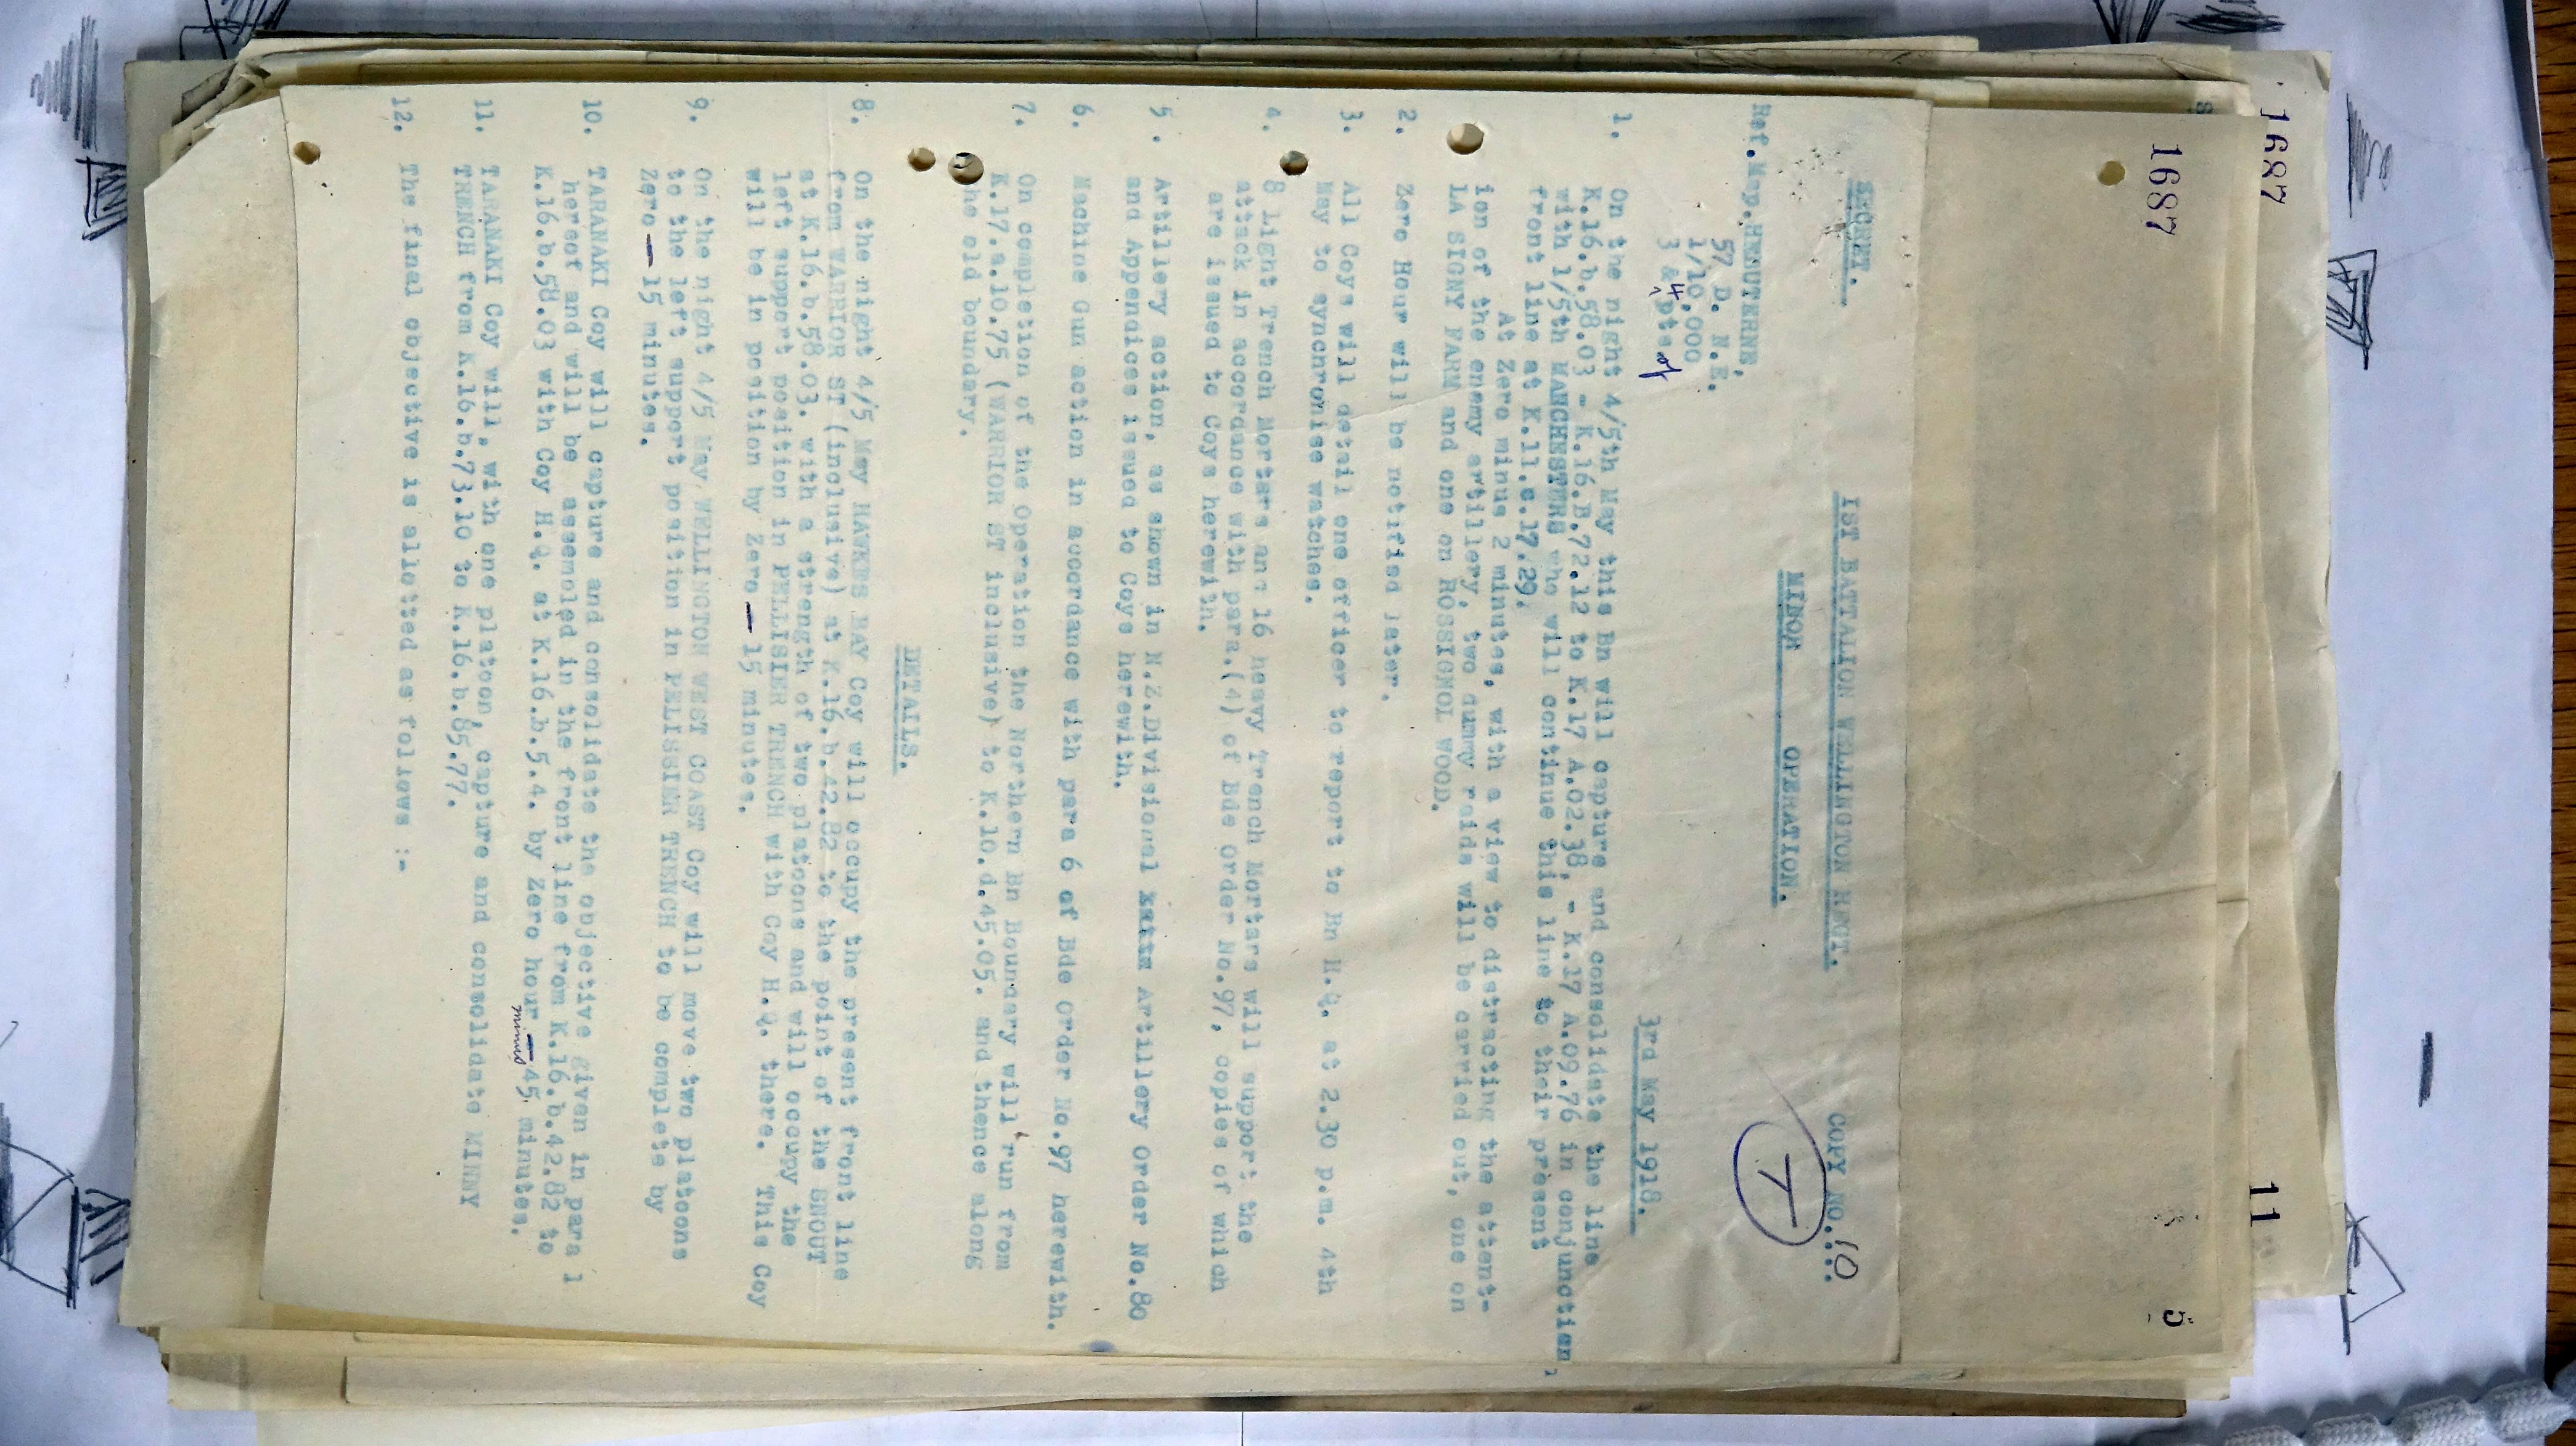 1687
1687
11
5
SECRET.
1ST BATTALION WELLINGTON REGT.
COPY NO. 10
MINOR OPERATION.
T
Ref.Map.HEBUTERNE,
57 D. N.E.
1/10,000
3 & 4 pts of
3rd May 1918.
1. On the night 4/5th May this Bn will capture and consolidate the line
K.16.b.58.03 - K.16.B.72.12 to K.17 A.02.38, - K.17 A.09.76 in conjunction
with 1/5th MANCHESTERS who will continue this line to their present
front line at K.11.c.17.29.
At Zero minus 2 minutes, with a view to distracting the attent-
ion of the enemy artillery, two dummy raids will be carried out, one on
LA SIGNY FARM and one on ROSSIGNOL WOOD.
2. Zero Hour will be notified later.
3. All Coys will detail one officer to report to Bn H.Q. at 2.30 p.m. 4th
May to syncnronise watches.
4. 8 Light Trench Mortars and 16 heavy Trench Mortars will support the
attack in accordance with para.(4) of Bde Order No.97, copies of which
are issued to Coys herewith.
5. Artillery action, as shown in N.Z.Divisional Artillery Order No.80
and Appendices issued to Coys herewith.
6. Machine Gun action in accordance with para 6 of Bde Order No.97 herewith.
7. On completion of the Operation the Northern Bn Boundary will run from
K.17.a.10.75 (WARRIOR ST inclusive) to K.10.d.45.05. and thence along
the old boundary.
DETAILS.
8. On the night 4/5 May HAWKES BAY Coy will occupy the present front line
from WARRIOR ST (inclusive) at K.16.b.42.82 to the point of the SNOUT
at K.16.b.58.03. with a strength of two platoons and will occupy the
left support position in PELLISIER TRENCH with Coy H.Q. there. This Coy
will be in position by Zero — 15 minutes.
9. On the night 4/5 May WELLINGTON WEST COAST Coy will move two platoons
to the left support position in PELISSIER TRENCH to be complete by
Zero — 15 minutes.
10. TARANAKI Coy will capture and consolidate the objective given in para 1
hereof and will be assembled in the front line from K.16.b.42.82 to
K.16.b.58.03 with Coy H.Q. at K.16.b.5.4. by Zero hour — 45 minutes.
minus
11. TARANAKI Coy will, with one platoon, capture and consolidate MINNY
TRENCH from K.16.b.73.10 to K.16.b.85.77.
12. The final objective is allotted as follows :-